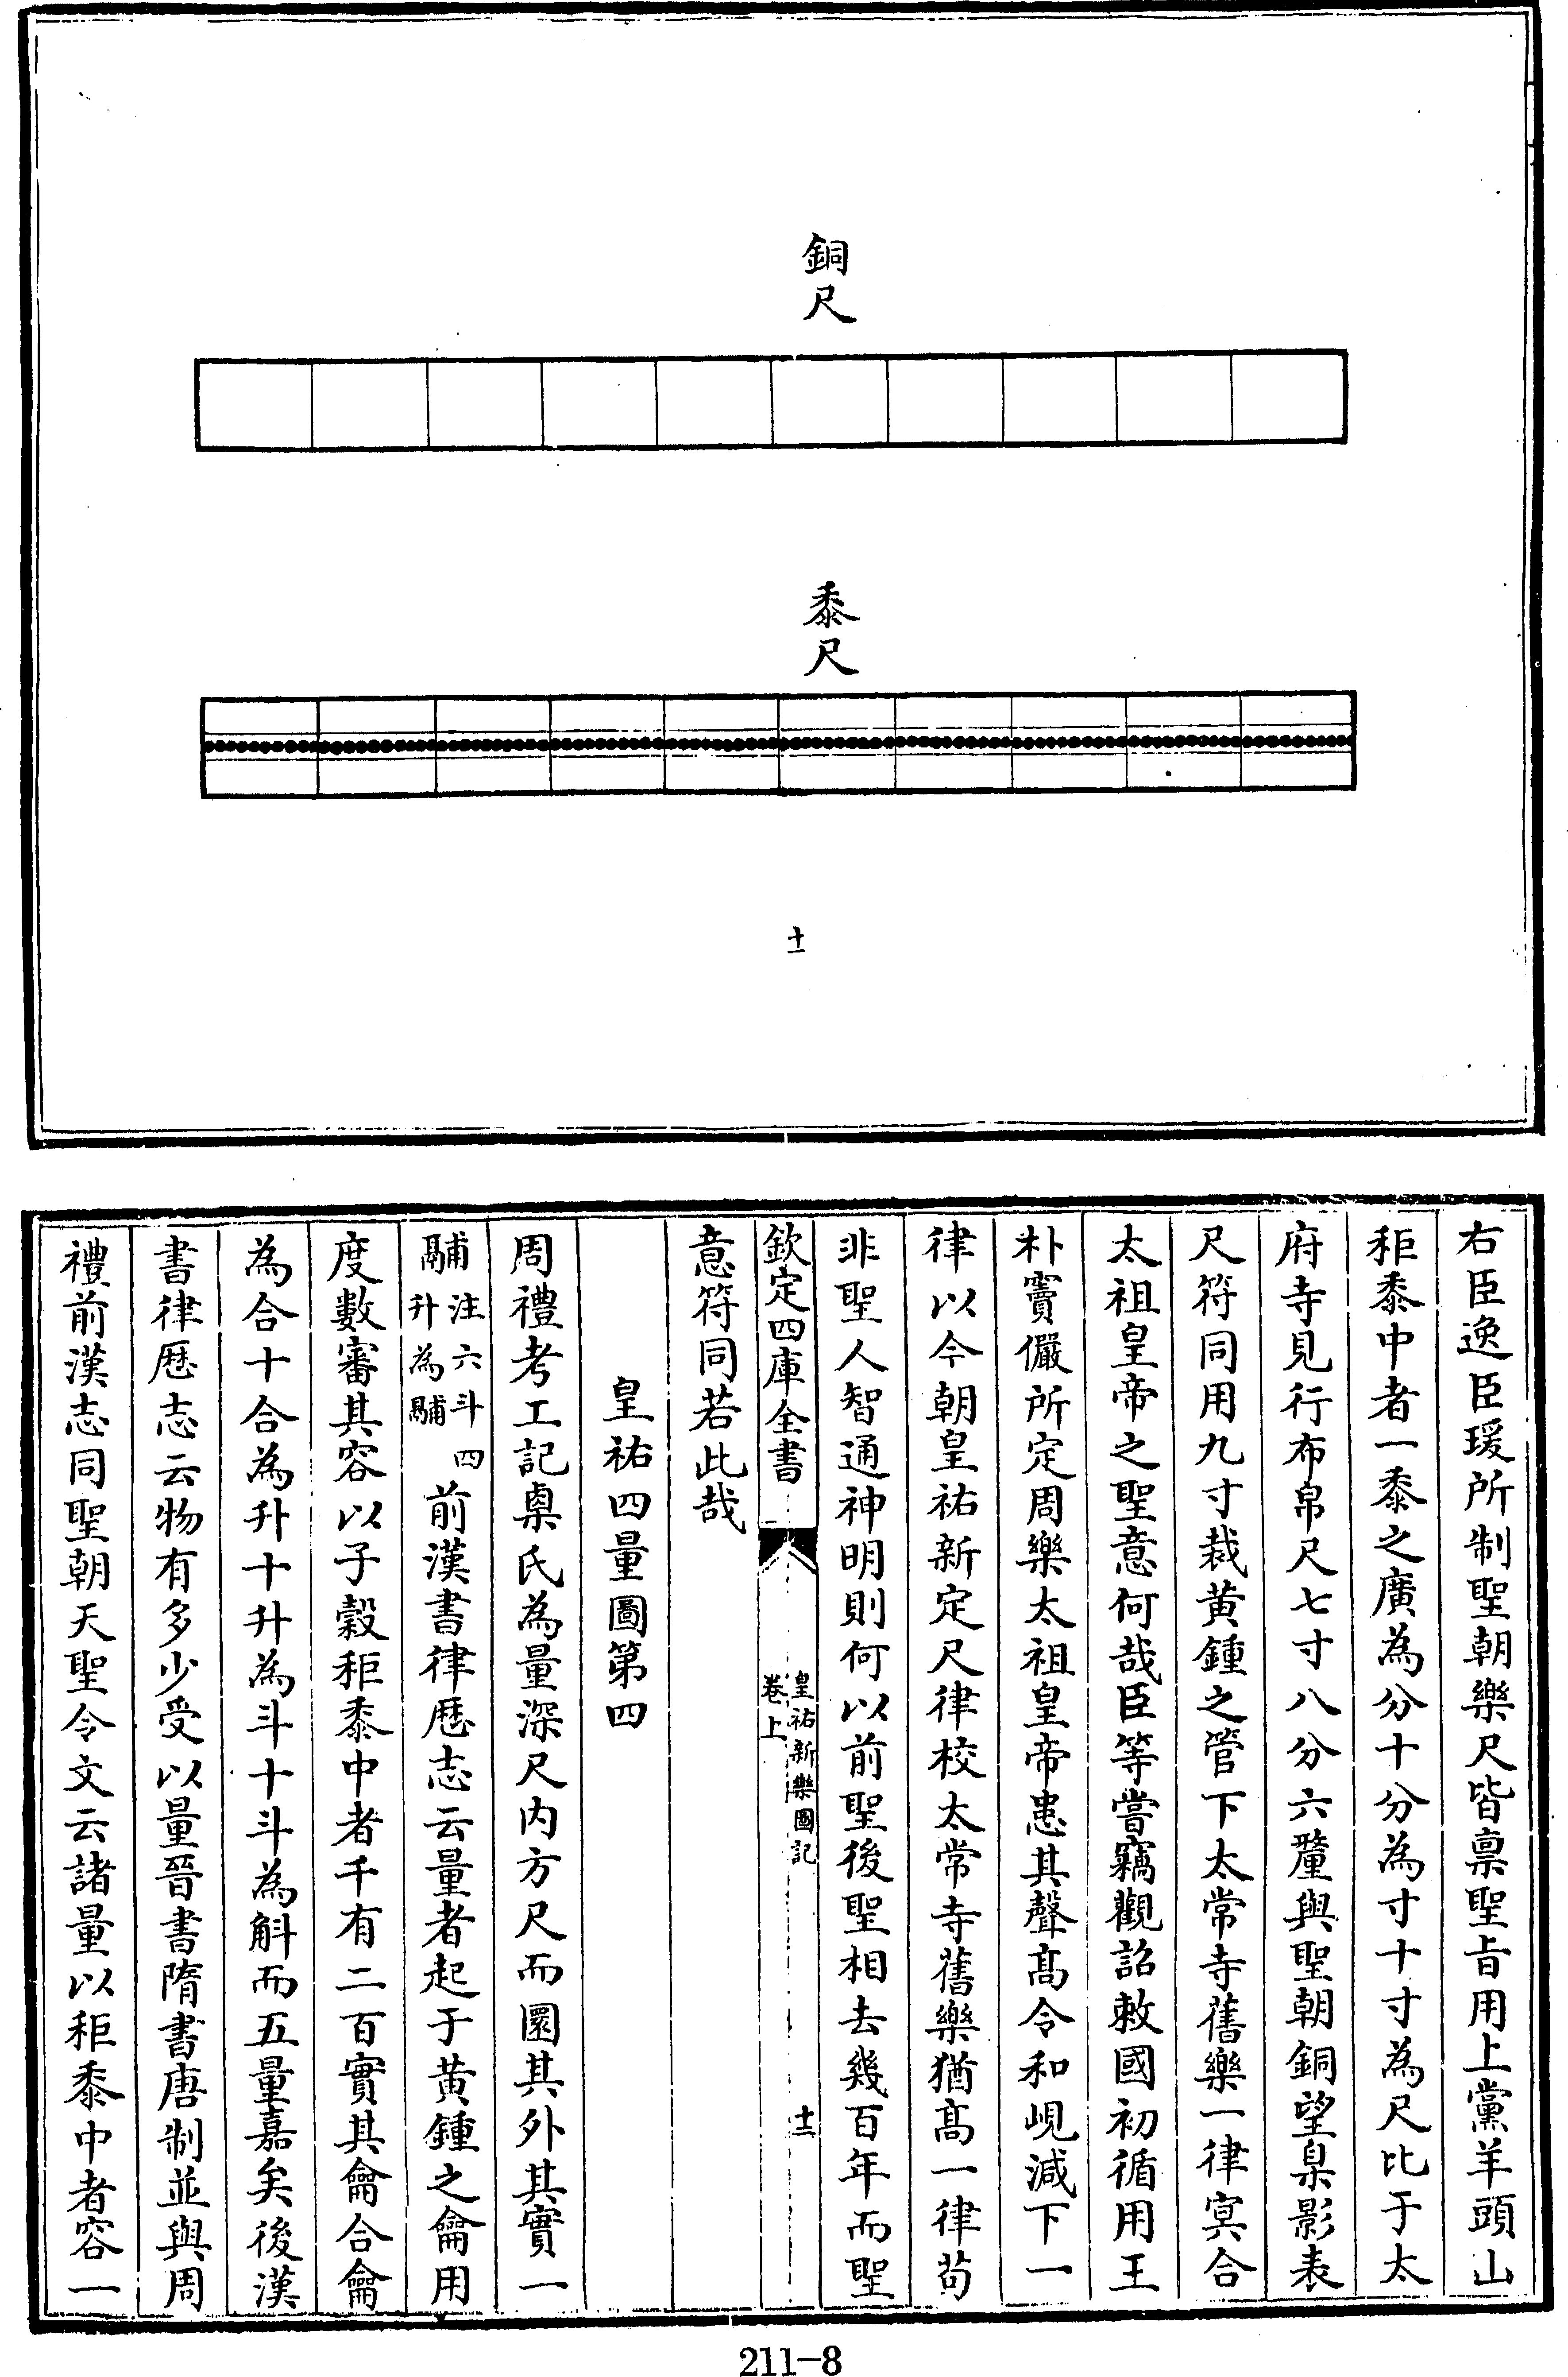 銅尺
黍尺
十一
右臣逸臣瑗所制聖朝樂尺皆禀聖旨用上黨羊頭山
秬黍中者一黍之廣為分十分為寸十寸為尺比于太
府寺見行布帛尺七寸八分六釐與聖朝銅望臬影表
尺符同用九寸裁黄鍾之管下太常寺舊樂一律冥合
太祖皇帝之聖意何哉臣等嘗竊觀詔敕國初循用王
朴竇儼所定周樂太祖皇帝患其聲髙令和峴減下一
律以今朝皇祐新定尺律校太常寺舊樂猶髙一律苟
非聖人智通神明則何以前聖後聖相去幾百年而聖
欽定四庫全書
皇祐新樂圖記
卷上
十二
意符同若此哉
皇祐四量圖第四
周禮考工記㮚氏為量深尺内方尺而圜其外其實一
鬴注六斗四升為鬴前漢書律厯志云量者起于黄鍾之龠用
度數審其容以子穀秬黍中者千有二百實其龠合龠
為合十合為升十升為斗十斗為斛而五量嘉矣後漢
書律厯志云物有多少受以量晉書隋書唐制並與周
禮前漢志同聖朝天聖令文云諸量以秬黍中者容一
211-8